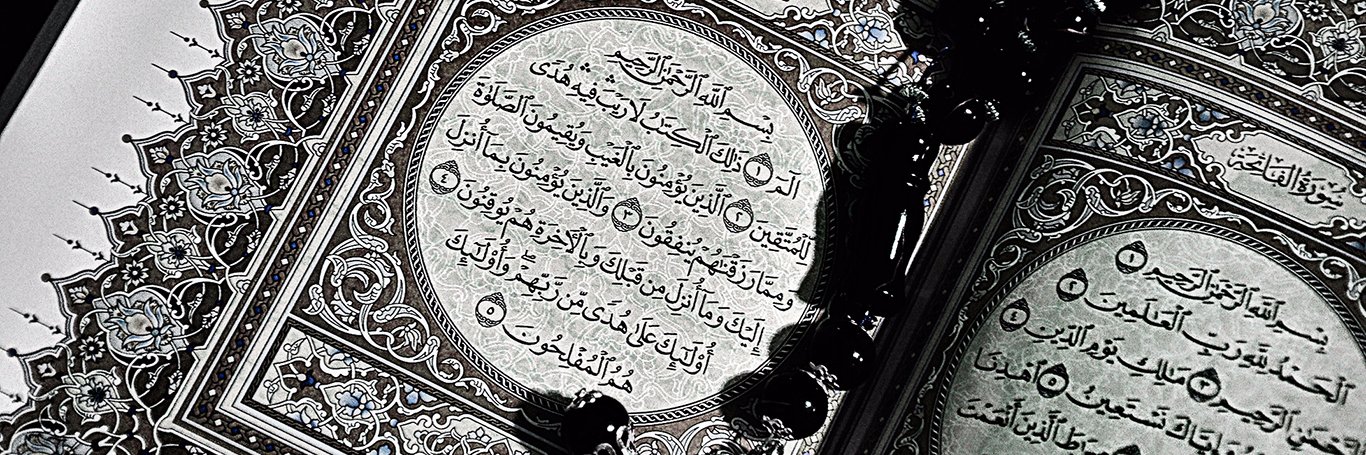 سُورَةُ الفَاتِحَةِ
بِسْمِ ٱللَّهِ ٱلرَّحْمَٰنِ ٱلرَّحِيمِ ١
ٱلْحَمْدُ لِلَّهِ رَبِّ ٱلْعَٰلَمِينَ ٢
ٱلرَّحِيمِ ٣ مَٰلِكِ يَوْمِ ٱلدِّينِ ٤
نَسْتَعِينُ ٥ ٱهْدِنَا
ٱلَّذِينَ أَنْعَمْتَ
بِسْمِ ٱللَّهِ ٱلرَّحْمَٰنِ ٱلرَّحِيمِ
الٓمٓ ١ ذَٰلِكَ ٱلْكِتَٰبُ لَا رَيْبَ ۛ فِيهِ ۛ هُدًى
لِّلْمُتَّقِينَ ٢ ٱلَّذِينَ يُؤْمِنُونَ بِٱلْغَيْبِ وَيُقِيمُونَ ٱلصَّلَوٰةَ
وَمِمَّا رَزَقْنَٰهُمْ يُنفِقُونَ ٣ وَٱلَّذِينَ يُؤْمِنُونَ بِمَآ أُنزِلَ
إِلَيْكَ وَمَآ أُنزِلَ مِن قَبْلِكَ وَبِٱلْءَاخِرَةِ هُمْ يُوقِنُونَ ٤
أُو۟لَٰٓئِكَ عَلَىٰ هُدًى مِّن رَّبِّهِمْ ۖ وَأُو۟لَٰٓئِكَ
هُمُ ٱلْمُفْلِحُونَ ٥